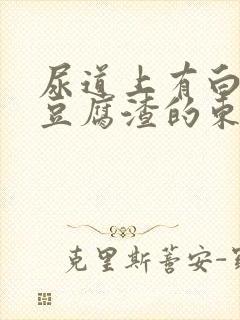 尿道上有白
豆腐渣的东
克里斯蒂安-罗